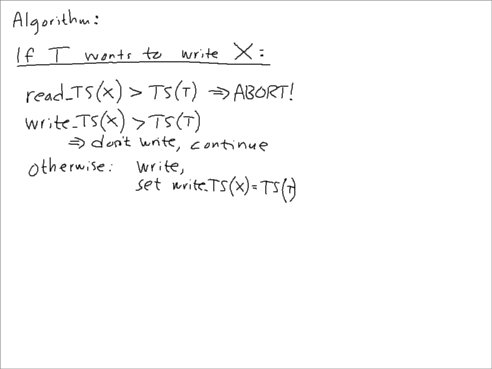 Algorithm:
If T wants to write X:
read_TS(X) > TS(T) ⇒ ABORT!
write_TS(X) > TS(T)
⇒ don't write, continue
otherwise: write,
set write_TS(X) = TS(T)